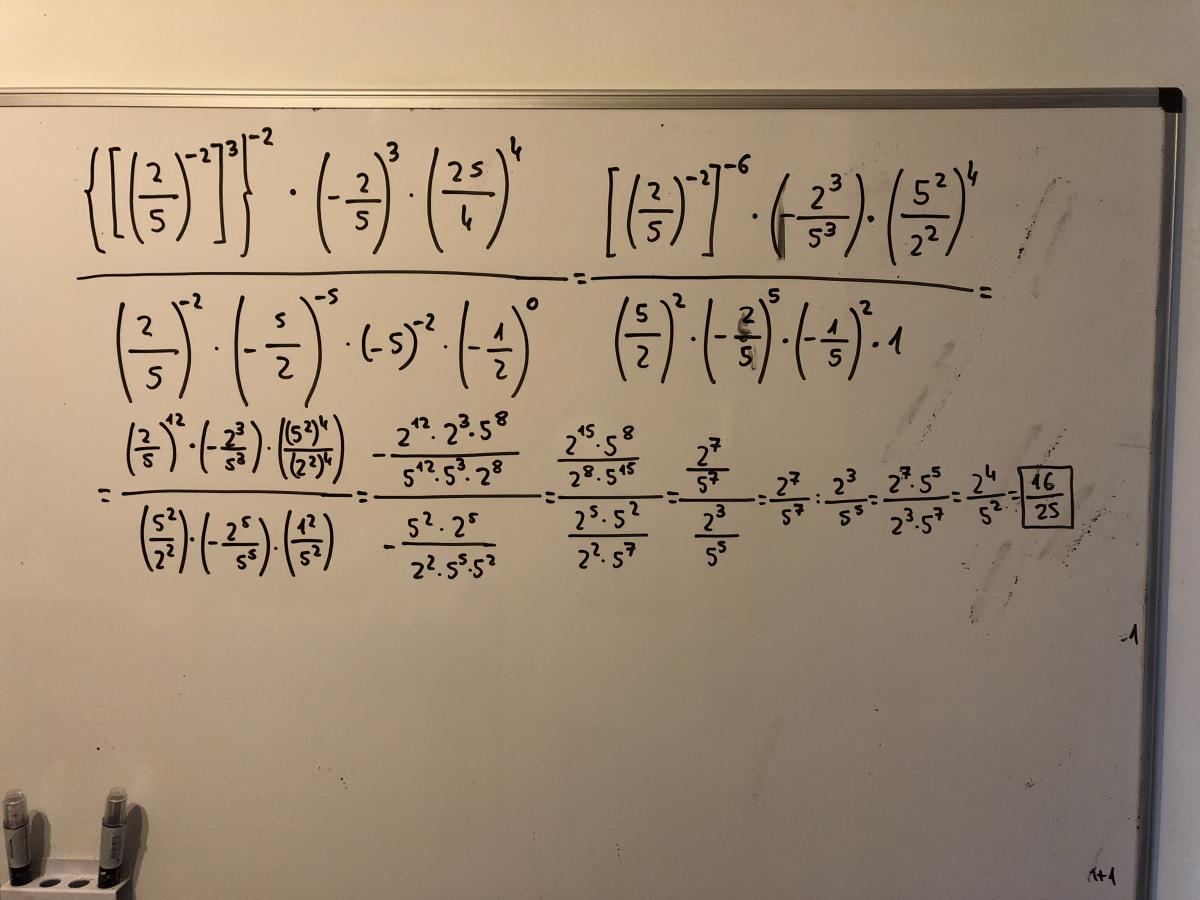 {[(2/5)^-2]^3}^-2 · (-2/5)^3 · (25/4)^4 / (2/5)^-2 · (-5/2)^-5 · (-5)^-2 · (-1/2)^0 = [(2/5)^-2]^-6 · (-2^3/5^3) · (5^2/2^2)^4 / (5/2)^2 · (-2/5)^5 · (-1/5)^2 · 1 =
= (2/5)^12 · (-2^3/5^3) · ((5^2)^4/(2^2)^4) / (5^2/2^2) · (-2^5/5^5) · (1^2/5^2) = - 2^12 · 2^3 · 5^8 / 5^12 · 5^3 · 2^8 / - 5^2 · 2^5 / 2^2 · 5^5 · 5^2 = 2^15 · 5^8 / 2^8 · 5^15 / 2^5 · 5^2 / 2^2 · 5^7 = 2^7/5^7 / 2^3/5^5 = 2^7/5^7 : 2^3/5^5 = 2^7 · 5^5 / 2^3 · 5^7 = 2^4/5^2 = 16/25
-1
1+1